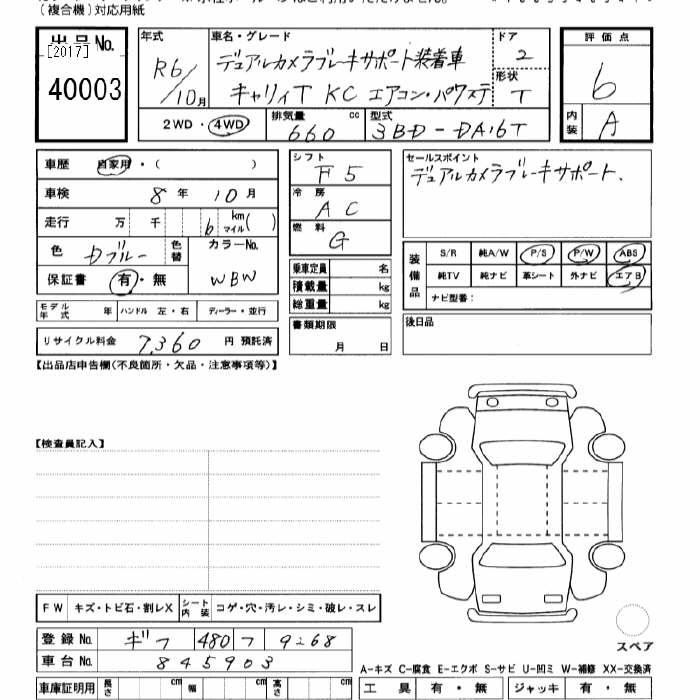 (複合機)対応用紙
出品No.
[2017]
40003
年式 R6/10月
車名・グレード
デュアルカメラブレーキサポート装着車
キャリイT KC エアコン・パワステ
ドア 2
形状 T
評価点 6
内装 A
2WD・4WD
排気量 660 cc
型式 3BD-DA16T
車歴 自家用・( )
車検 8年 10月
走行 万 千 6 km マイル( )
色 Dブルー 色替 カラーNo. WBW
保証書 有・無
モデル年式 年 ハンドル 左・右 ディーラー・並行
リサイクル料金 7,360 円 預託済
シフト F5
冷房 AC
燃料 G
乗車定員 名
積載量 kg
総重量 kg
書類期限 月 日
セールスポイント
デュアルカメラブレーキサポート.
装備品
S/R 純A/W P/S P/W ABS
純TV 純ナビ 革シート 外ナビ エアB
ナビ型番:
後日品
【出品店申告欄(不良箇所・欠品・注意事項等)】
【検査員記入】
FW キズ・トビ石・割レX シート内装 コゲ・穴・汚レ・シミ・破レ・スレ
登録No. ギフ 480 フ 9268
車台No. 845903
車庫証明用 長さ cm 幅 cm 高さ cm
スペア
A-キズ C-腐食 E-エクボ S-サビ U-凹ミ W-補修 XX-交換済
工具 有・無 ジャッキ 有・無